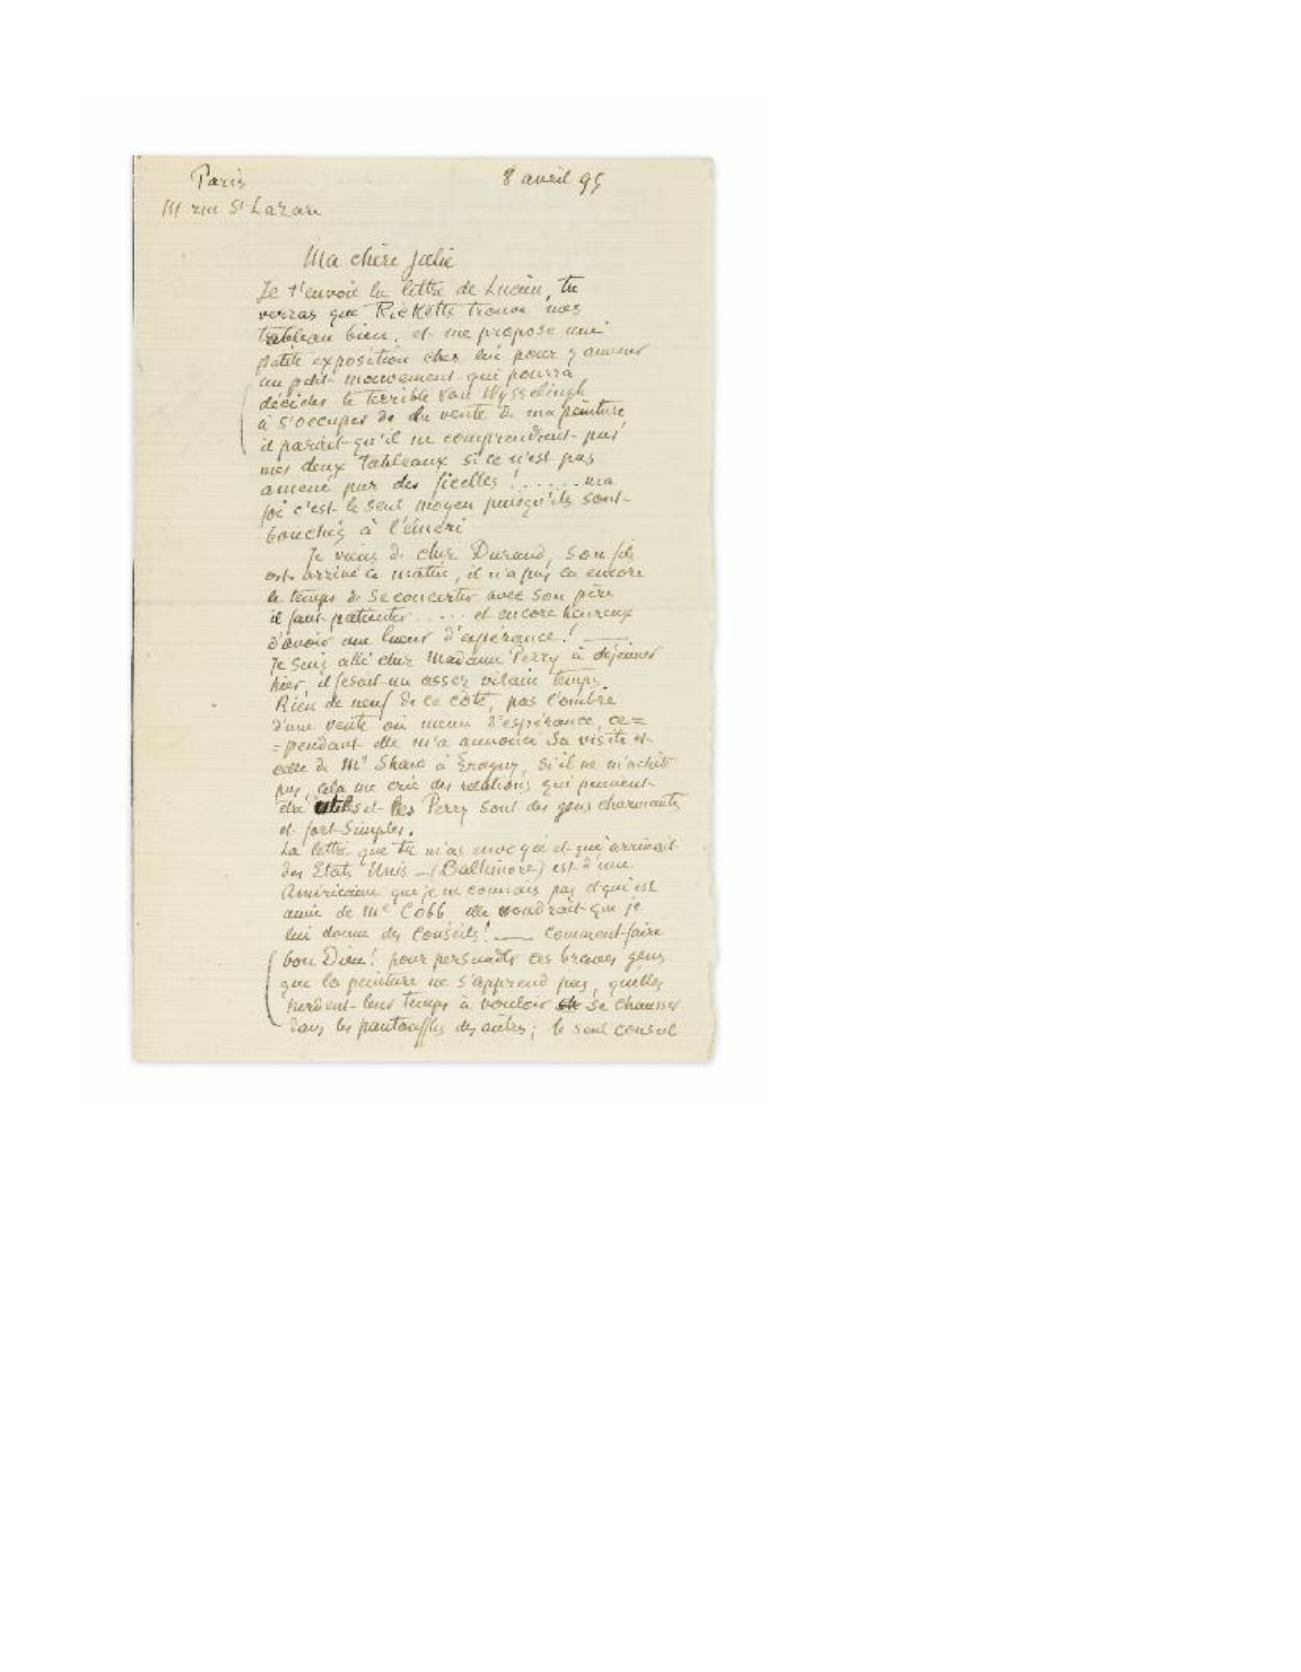 Paris
8 avril 95
111 rue St Lazare
Ma chère Julie
Je t'envoie la lettre de Lucien, tu
verras que Ricketts trouve mes
tableau bien, et me propose une
petite exposition chez lui pour y amener
un petit mouvement qui pourra
décider le terrible Van Wysselingh
à s'occuper de la vente de ma peinture
il parait qu'il ne comprendront pas
mes deux tableaux si ce n'est pas
amené par des ficelles ! ...... ma
foi c'est le seul moyen puisqu'ils sont
bouchés à l'émeri
Je viens de chez Durand, son fils
est arrivé ce matin, il n'a pas eu encore
le temps de se concerter avec son père
il faut patienter ..... et encore heureux
d'avoir une lueur d'espérance !
Je suis allé chez Madame Perry à déjeuner
hier, il fesait un assez vilain temps.
Rien de neuf de ce côté, pas l'ombre
d'une vente ou meme d'espérance, ce=
=pendant elle m'a annoncé sa visite et
celle de Mr Shaw à Eragny, si il ne m'achète
pas, cela me crée des relations qui peuvent
être utiles et les Perry sont des gens charmants
et fort simples.
La lettre que tu m'as envoyée et qui arrivait
des Etats Unis — (Baltimore) est d'une
Américaine que je ne connais pas et qui est
amie de Me Cobb, elle voudrait que je
lui donne des conseils ! — comment faire
bon Dieu ! pour persuader ces braves gens
que la peinture ne s'apprend pas, qu'elles
perdent leur temps à vouloir se chausser
dans les pantouffles des autres ; le seul conseil